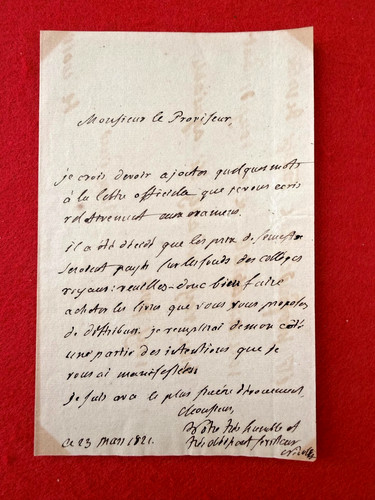 Monsieur le Proviseur,
je crois devoir ajouter quelques mots
à la lettre officielle que je vous écris
relativement aux examens.
il a été décidé que les prix de semestre
seroient payés sur les fonds des collèges
royaux: veuillez-donc bien faire
acheter les livres que vous vous proposez
de distribuer. je remplirai de mon côté
une partie des intentions que je
vous ai manifestées.
Je suis avec le plus sincère dévouement,
Monsieur,
Votre très humble et
très obéissant serviteur
ce 23 mars 1821.